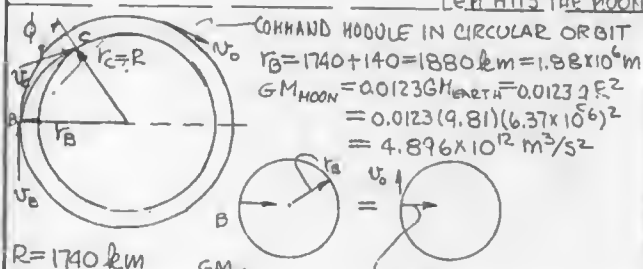 LEM HITS THE MOON
COMMAND MODULE IN CIRCULAR ORBIT
r_B = 1740+140 = 1880 km = 1.88×10⁶ m
GM_MOON = 0.0123 GM_EARTH = 0.0123 g R²
= 0.0123 (9.81)(6.37×10⁶)²
= 4.896×10¹² m³/s²
φ
C
r_C = R
v_0
v_C
B
r_B
v_B
B
r_B
=
v_0
R = 1740 km
GM